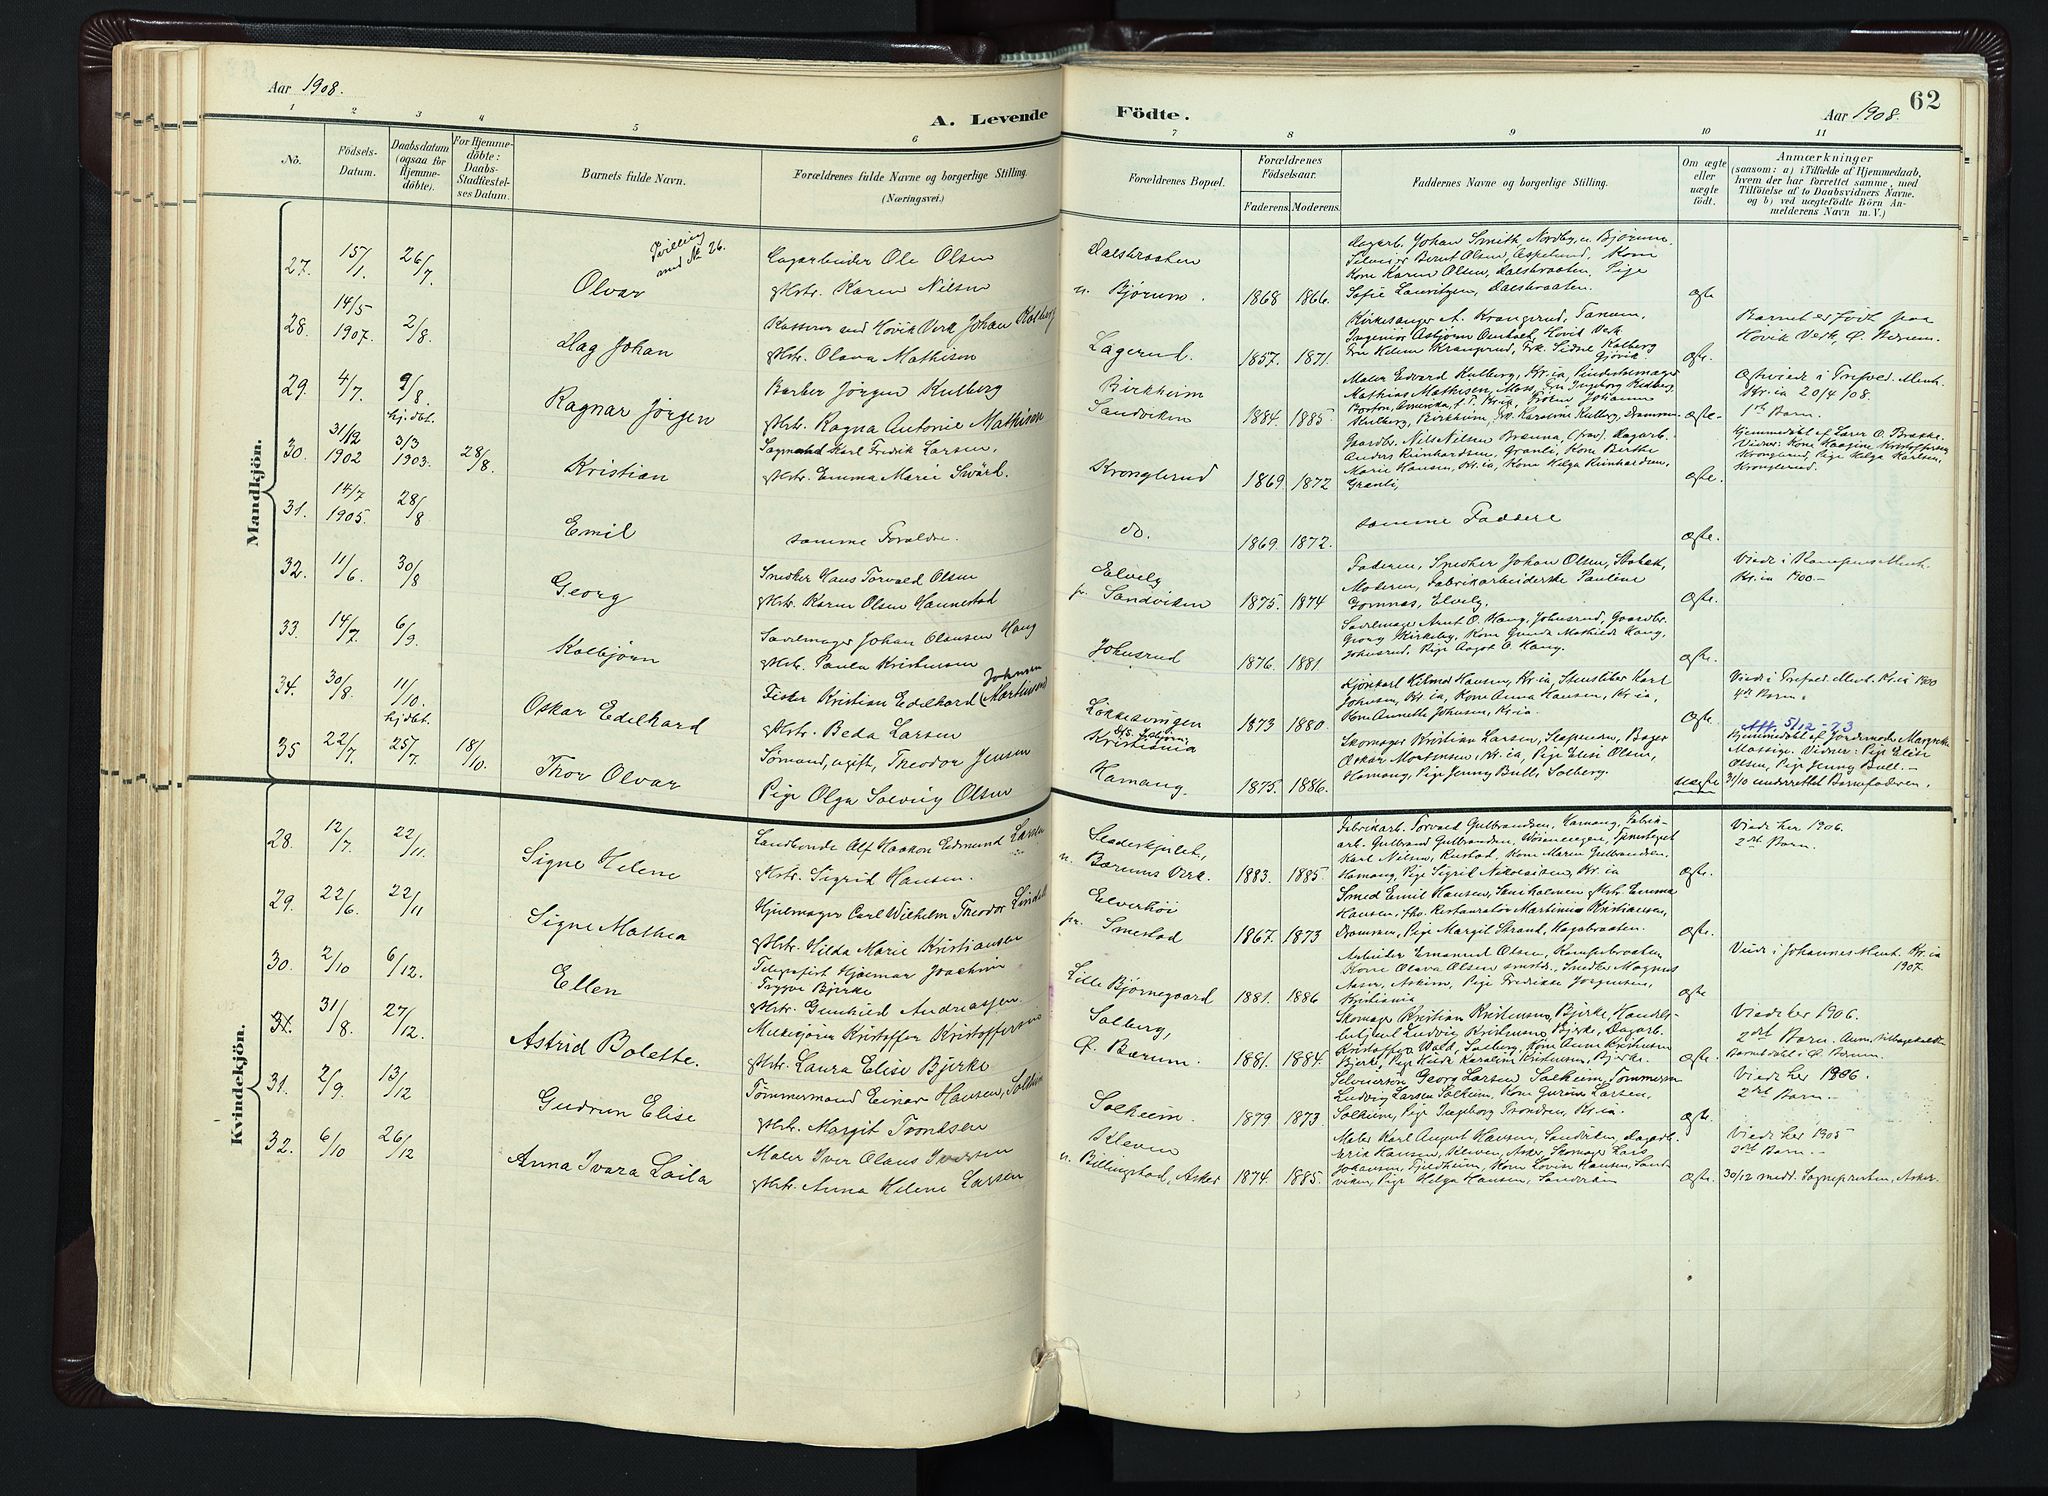 Aar 1908.
A. Levende Födte.
Aar 1908.
62
1 2 3 4 5 6 7 8 9 10 11
No.
Födsels-Datum.
Daabsdatum (ogsaa for Hjemme-döbte).
For Hjemme-döbte: Daabs-Stadfæstel-ses Datum.
Barnets fulde Navn.
Forældrenes fulde Navne og borgerlige Stilling.
(Næringsvei.)
Forældrenes Bopæl.
Forældrenes Födselsaar.
Faderens.
Moderens.
Faddernes Navne og borgerlige Stilling.
Om ægte eller uægte födt.
Anmærkninger
(saasom: a) i Tilfælde af Hjemmedaab,
hvem der har forrettet samme, med
Tilföielse af to Daabsvidners Navne.
og b) ved uægtefödte Börn An-
melderens Navn m. V.)
Mandkjön.
27. 15/1. 26/7. Olvar
Tvilling med No 26.
Ole Olsen
Hstr. Karen Nilsen
Dalsbraaten
u. Bjørum. 1868 1866.
Dagarb. Johan Smith, Nordby, u. Bjørum.
Bernt Olsen, Aspelund, Kone
Kone Karen Olsen, Dalsbraaten, Pige
Sofie Lauritzen, Dalsbraaten.
ægte
28. 14/5 1907. 2/8. Dag Johan
Kasserer ved Høvik Verk Johan Kolberg
Hstr. Olava Mathisen
Løgerud. 1857. 1871.
Kirkesanger A. Krangerud, Tanum,
Ingeniør Asbjørn Høvik Verk
Fru Helene Krangrud, Frk. Signe Kolberg
Gjøvik.
ægte.
Barnet er født paa
Høvik Verk, Ø. Bærum.
29. 4/7. 9/8. Ragnar Jörgen
Barber Jörgen Kulberg
Hstr. Ragna Antonie Mathisen
Birkheim
Sandviken 1884. 1885.
Maler Edvard Kulberg, Kr.ia,
Mathias Mathisen, Moss, Fru Ingeborg
Boston, Amerika,
Kulberg, Birkheim, Frk. Karoline Kulberg, Drammen
ægte.
20/4 08.
1ste Barn.
30. 31/12 1902 hj.dbt. 3/3 1903. 28/8. Kristian
Karl Fredrik Larsen,
Hstr. Emma Marie Swärd.
Kronglerud 1869. 1872
Gaardbr. Nils Nilsen Brauna, (frav). Dagarb.
Anders Reinhardsen, Granli, Kone Berthe
Marie Hansen, Kr.ia, Kone Helga Reinhardsen,
Granli,
ægte.
Hjemmedøbt af Lærer O. Brække.
Vidner: Kone Haagine Kristoffersen
Kronglerud, Pige Helga Karlsen,
Kronglerud.
31. 14/7 1905. 28/8 Emil
samme Forældre.
do. 1869. 1872.
samme Faddere
ægte.
32. 11/6. 30/8 Georg
Snedker Hans Torvald Olsen
Hstr. Karen Olsen Hannestad
Elvely
pr. Sandviken 1875. 1874
Faderen, Snedker Johan Olsen, Stabæk,
Moderen, Fabrikarbeiderske Pauline
Gomnæs, Elvely.
ægte.
Viede i Kampens Menh.
Kr.ia 1900.-
33. 14/7. 6/9. Kolbjørn
Sadelmager Johan Olausen Haug
Hstr. Paula Kristensen
Johnsrud 1876. 1881.
Sadelmager Arnt O. Haug, Johnsrud, Gaardbr.
Georg Kirkeby, Kone Gunda Mathilde Haug,
Johnsrud, Pige Aagot O. Haug.
ægte.
34. 30/8. 11/10. Oskar Edelhard
Fisker Kristian Edelhard (Martinsen) Johnsen
Hstr. Beda Larsen
Løkkesvingen 1873 1880.
Kjørekarl Hilmar Hansen, Kr.ia, Stensliber Karl
Johnsen, Kr.ia, Kone Anna Hansen, Kr.ia,
Kone Annette Johnsen, Kr.ia.
ægte.
Viede i Menh. Kr.ia 1900
4de Barn.
Att. 5/12-73
35 22/7. hj.dbt. 25/7. 18/10. Thor Olvar
Sømand, ugift, Theodor Jensen
Pige Olga Solveig Olsen
Kristiania
Hamang. 1875. 1886.
Skomager Kristian Larsen, Slependen, Bager
Oskar Mortensen, Kr.ia, Pige Elise Olsen,
Hamang, Pige Jenny Bull, Solberg.
uægte
Hjemmedøbt af Jordemoder
Vidner: Pige Elise
Olsen, Pige Jenny Bull.-
31/10 underrettet Barnefaderen.
Kvindekjön.
28. 12/7. 22/11. Signe Helene
Landbonde Alf Haakon Edmund Larsen
Hstr. Sigrid Hansen.
u. Bærums Verk. 1883. 1885.
Fabrikarb. Torvald Gulbrandsen, Hamang, Fabrik-
arb. Gulbrand Gulbrandsen,
Karl Nilsen, Rustad, Kone Maren Gulbrandsen,
Hamang, Pige Sigrid Nikolaisen, Kr.ia
ægte.
Viede her 1906.
2det Barn.
29. 22/6. 22/11 Signe Mathea
Hjulmager Carl Wilhelm Theodor Lindell
Hstr. Hilda Marie Kristiansen
Elverhøi
pr. Smestad 1867. 1873
Smed Emil Hansen, Hstr. Emma
Hansen, fhv. Restauratør Martinius Kristiansen,
Drammen, Pige Margit Strand, Hagabraaten.
ægte.
30. 2/10 6/12. Ellen
Telegrafist Hjalmar Joachim
Trygve Bjerke
Hstr. Gunhild Andreassen.
Lille Bjørnegaard 1881. 1886
Arbeider Emanuel Olsen,
Kone Olava Olsen smstd., Snedker Magnus
Aser, Askim, Pige Fredrikke Jørgensen,
Kristiania
ægte
Viede i Johannes Menh. Kr.ia
1907.
31. 31/8. 27/12. Astrid Bolette.
Kristoffer Kristoffersen
Hstr. Laura Elise Bjerke
Solberg,
Ø. Bærum. 1881. 1884.
Skomager Kristian Kristensen, Bjerke,
Ludvig Kristensen, Bjerke, Dagarb.
Kristoffer Wold, Solberg, Kone Anne Kristensen
Bjerke, Pige Hulda Karoline Kristensen, Bjerke.
ægte.
Viede her 1906.
2det Barn.
Barnet døbt i Ø. Bærum.
31. 2/9. 13/12 Gudrun Elise
Tømmermand Einar Hansen, Solheim
Hstr. Margit Trondsen
Solheim. 1879 1873.
Georg Larsen Solheim, Tømmerm
Ludvig Larsen Solheim, Kone Gurine Larsen,
Solheim, Pige Ingeborg Trondsen, Kr.ia.
ægte.
Viede her 1906.
2det Barn.-
32. 6/10 26/12 Anna Ivara Laila
Maler Iver Olaus Iversen
Hstr. Anna Helene Larsen
Kleven
u. Billingstad, Asker 1874. 1885.
Maler Karl August Hansen, Sandviken, Dagarb.
Erik Hansen, Kleven, Asker, Skomager Lars
Johansen, Fjeldheim, Kone Lovise Hansen, Sand-
viken, Pige Helga Hansen, Sandviken
ægte.
Viede her 1905
2det Barn.-
30/12 medd. Sognepresten, Asker.